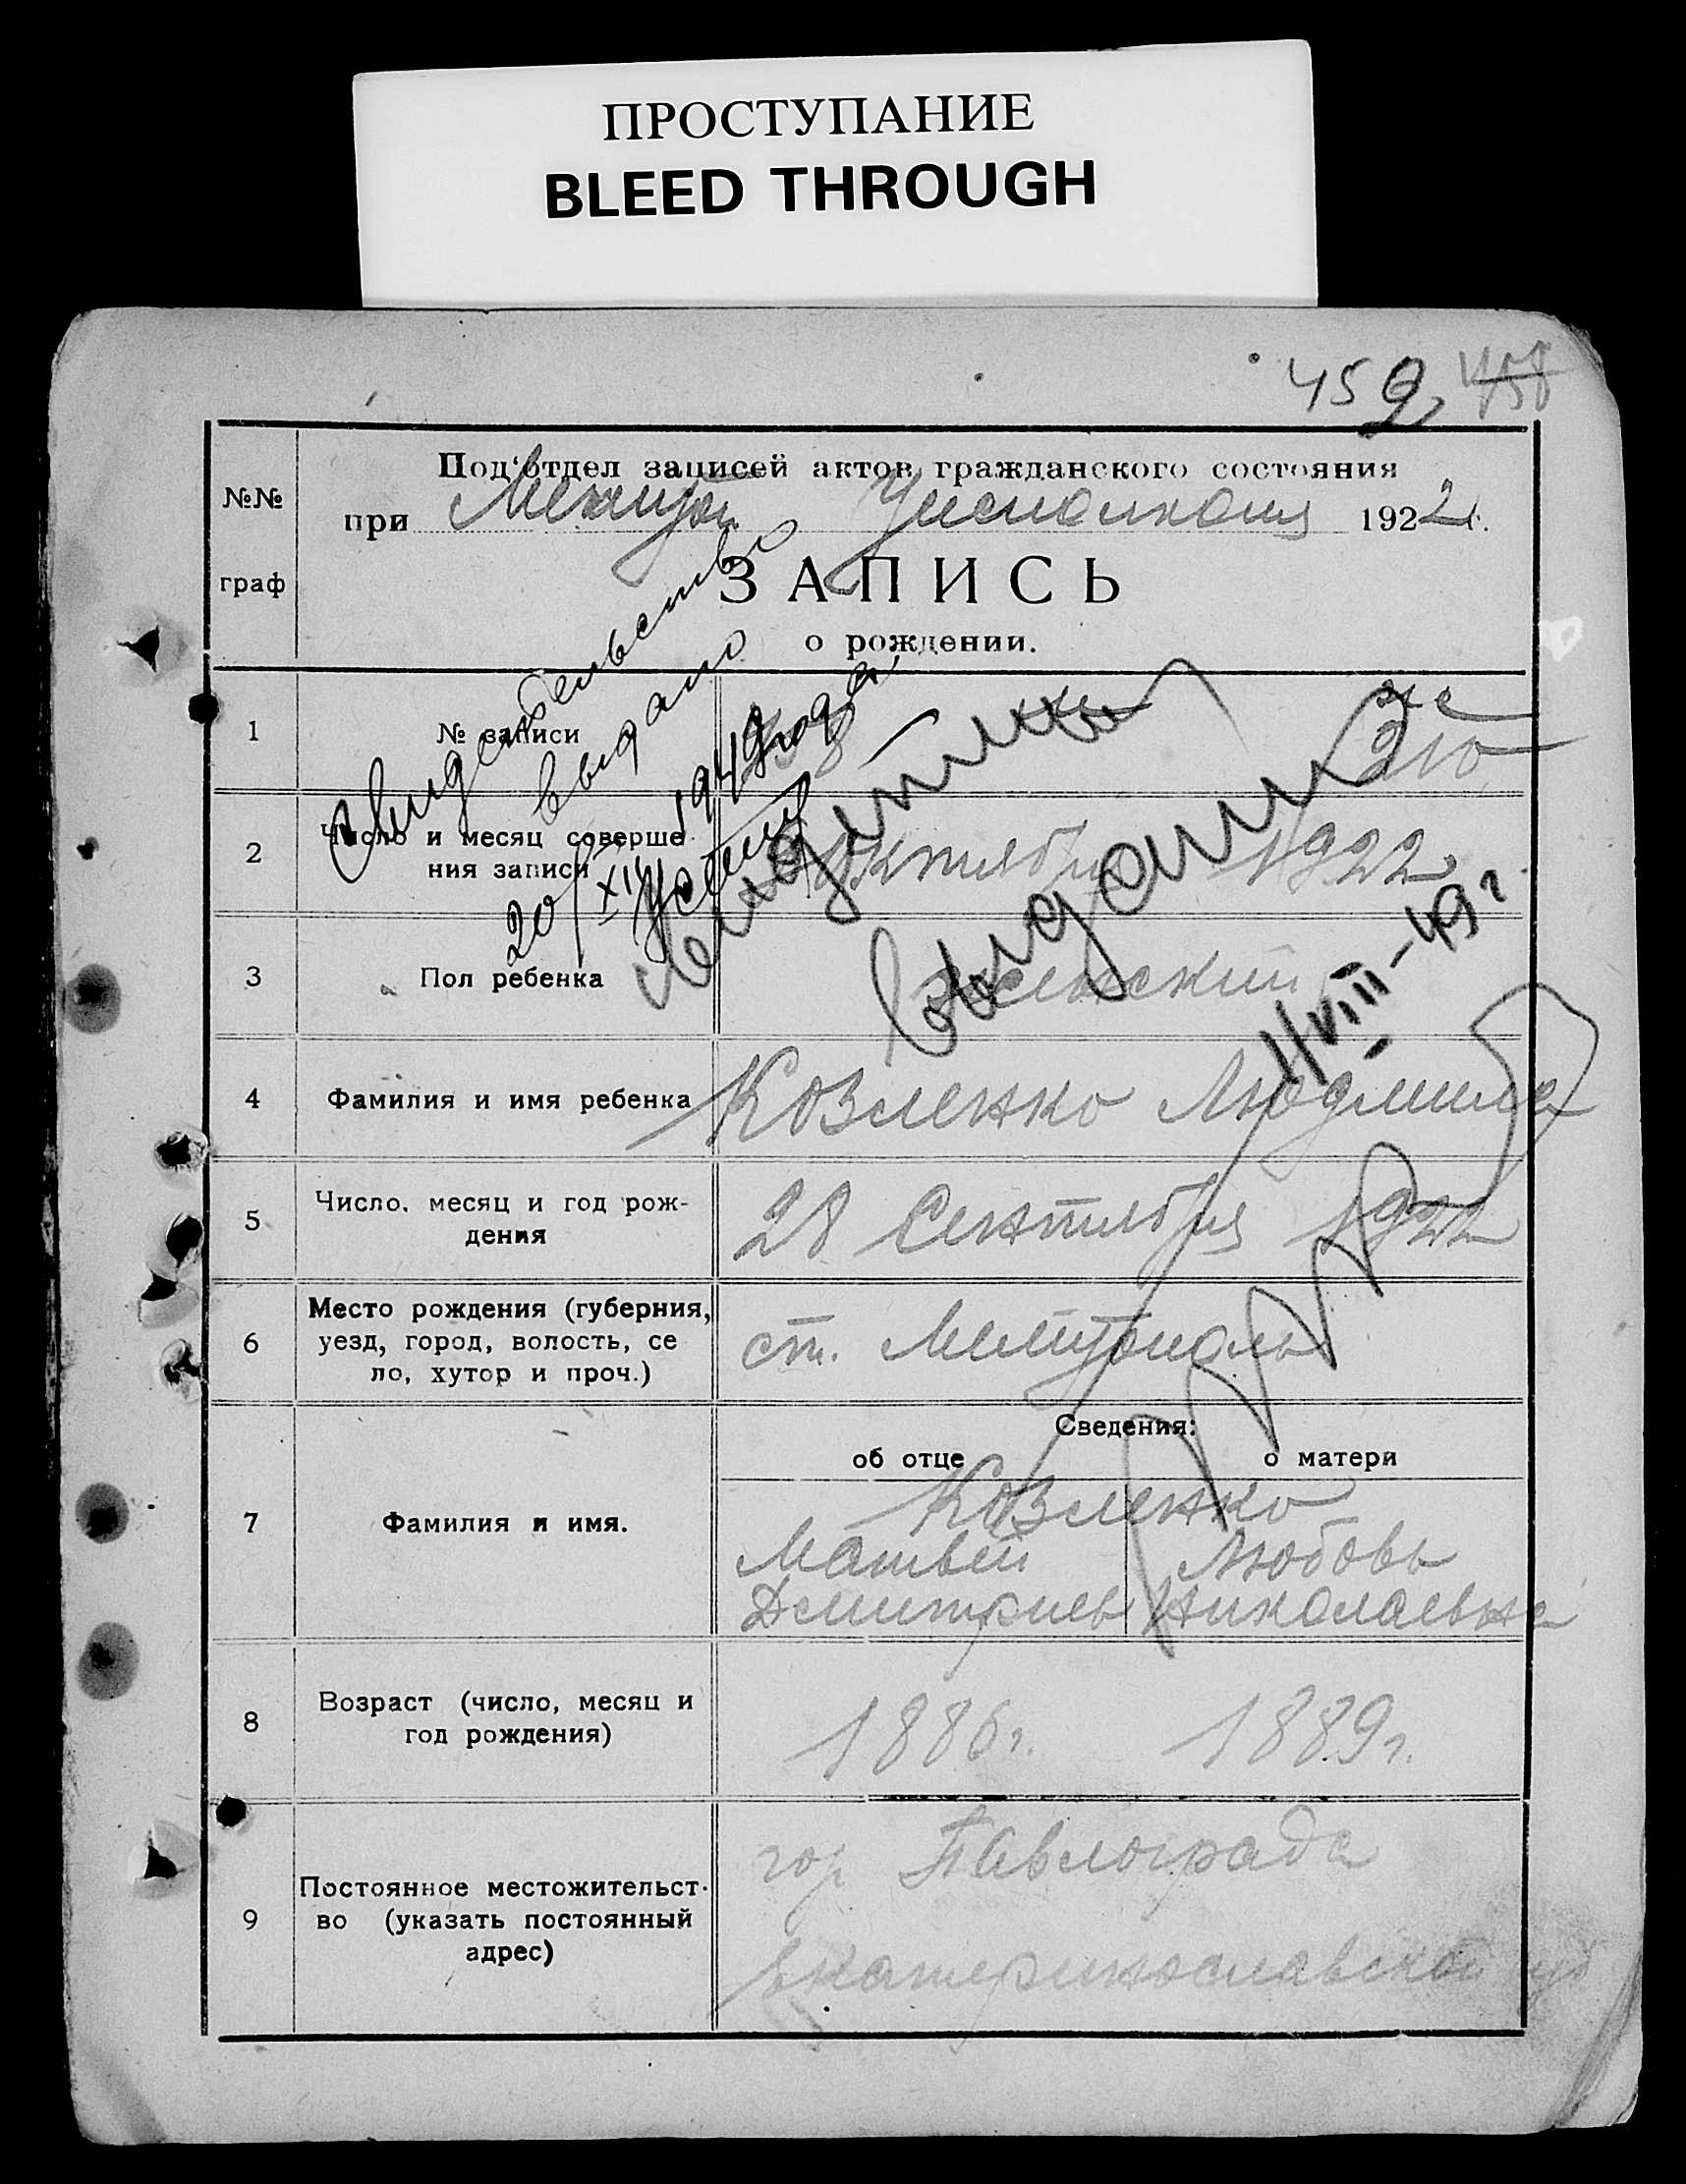 ПРОСТУПАНИЕ
BLEED THROUGH
459, 458
№№
граф
Под'отдел записей актов гражданского состояния
при Мелитоп Уисполкома 1922 г.
ЗАПИСЬ
о рождении.
1 № записи 458
2 Число и месяц соверше-
ния записи Октября 1922
3 Пол ребенка женский
4 Фамилия и имя ребенка Козленко Людмила
5 Число, месяц и год рож-
дения 28 Сентября 1922
6 Место рождения (губерния,
уезд, город, волость, се
ло, хутор и проч.) ст. Мелитополь
Сведения:
об отце о матери
7 Фамилия и имя. Козленко
Матвей Любовь
Дмитриев Николаевна
8 Возраст (число, месяц и
год рождения) 1886г. 1889г.
9 Постоянное местожительст-
во (указать постоянный
адрес) гор Павлограда
Екатеринославской губ
Свидетельство
выдано
20/XII 1949 года
выдана
11/VIII-49 г.